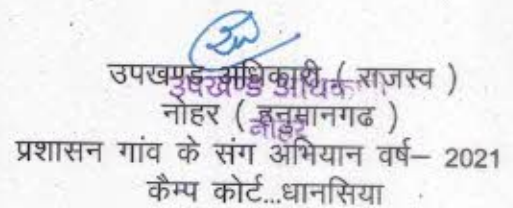 उपखण्ड अधिकारी ( राजस्व )
उपखण्ड अधिक
नोहर ( हनुमानगढ )
नोहर
प्रशासन गांव के संग अभियान वर्ष– 2021
कैम्प कोर्ट...धानसिया